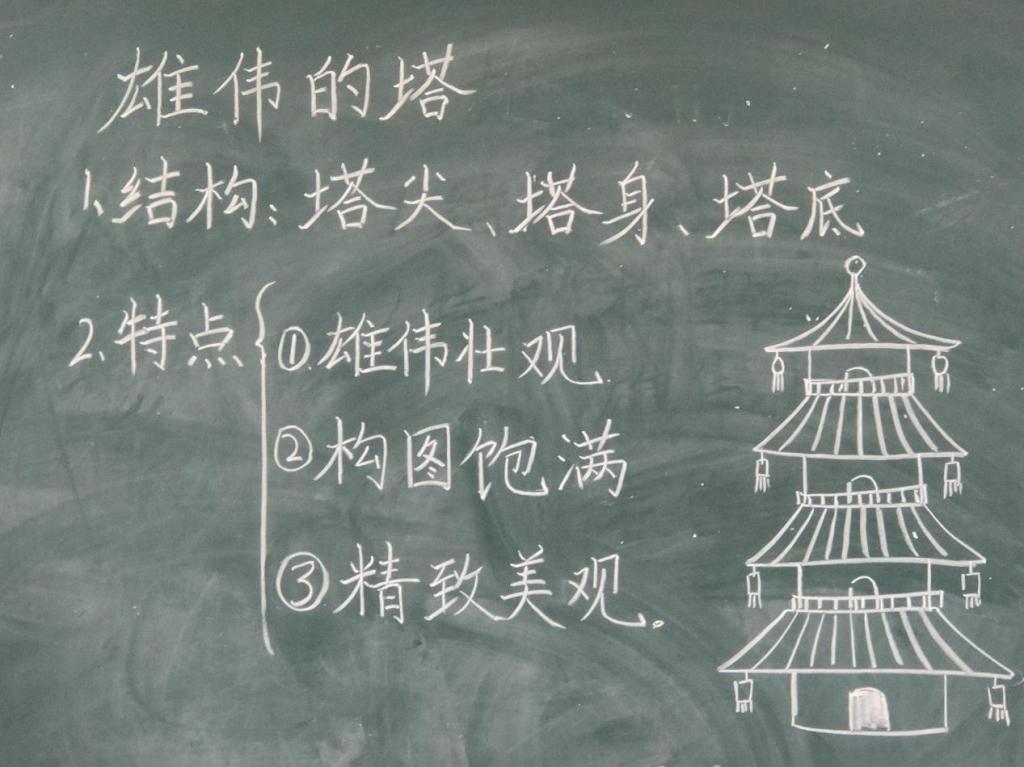 雄伟的塔
1、结构：塔尖、塔身、塔底
2、特点
①.雄伟壮观.
②构图饱满
③精致美观。